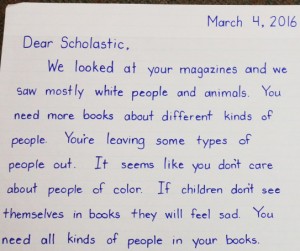 March 4, 2016
Dear Scholastic,
We looked at your magazines and we
saw mostly white people and animals. You
need more books about different kinds of
people. You're leaving some types of
people out. It seems like you don't care
about people of color. If children don't see
themselves in books they will feel sad. You
need all kinds of people in your books.